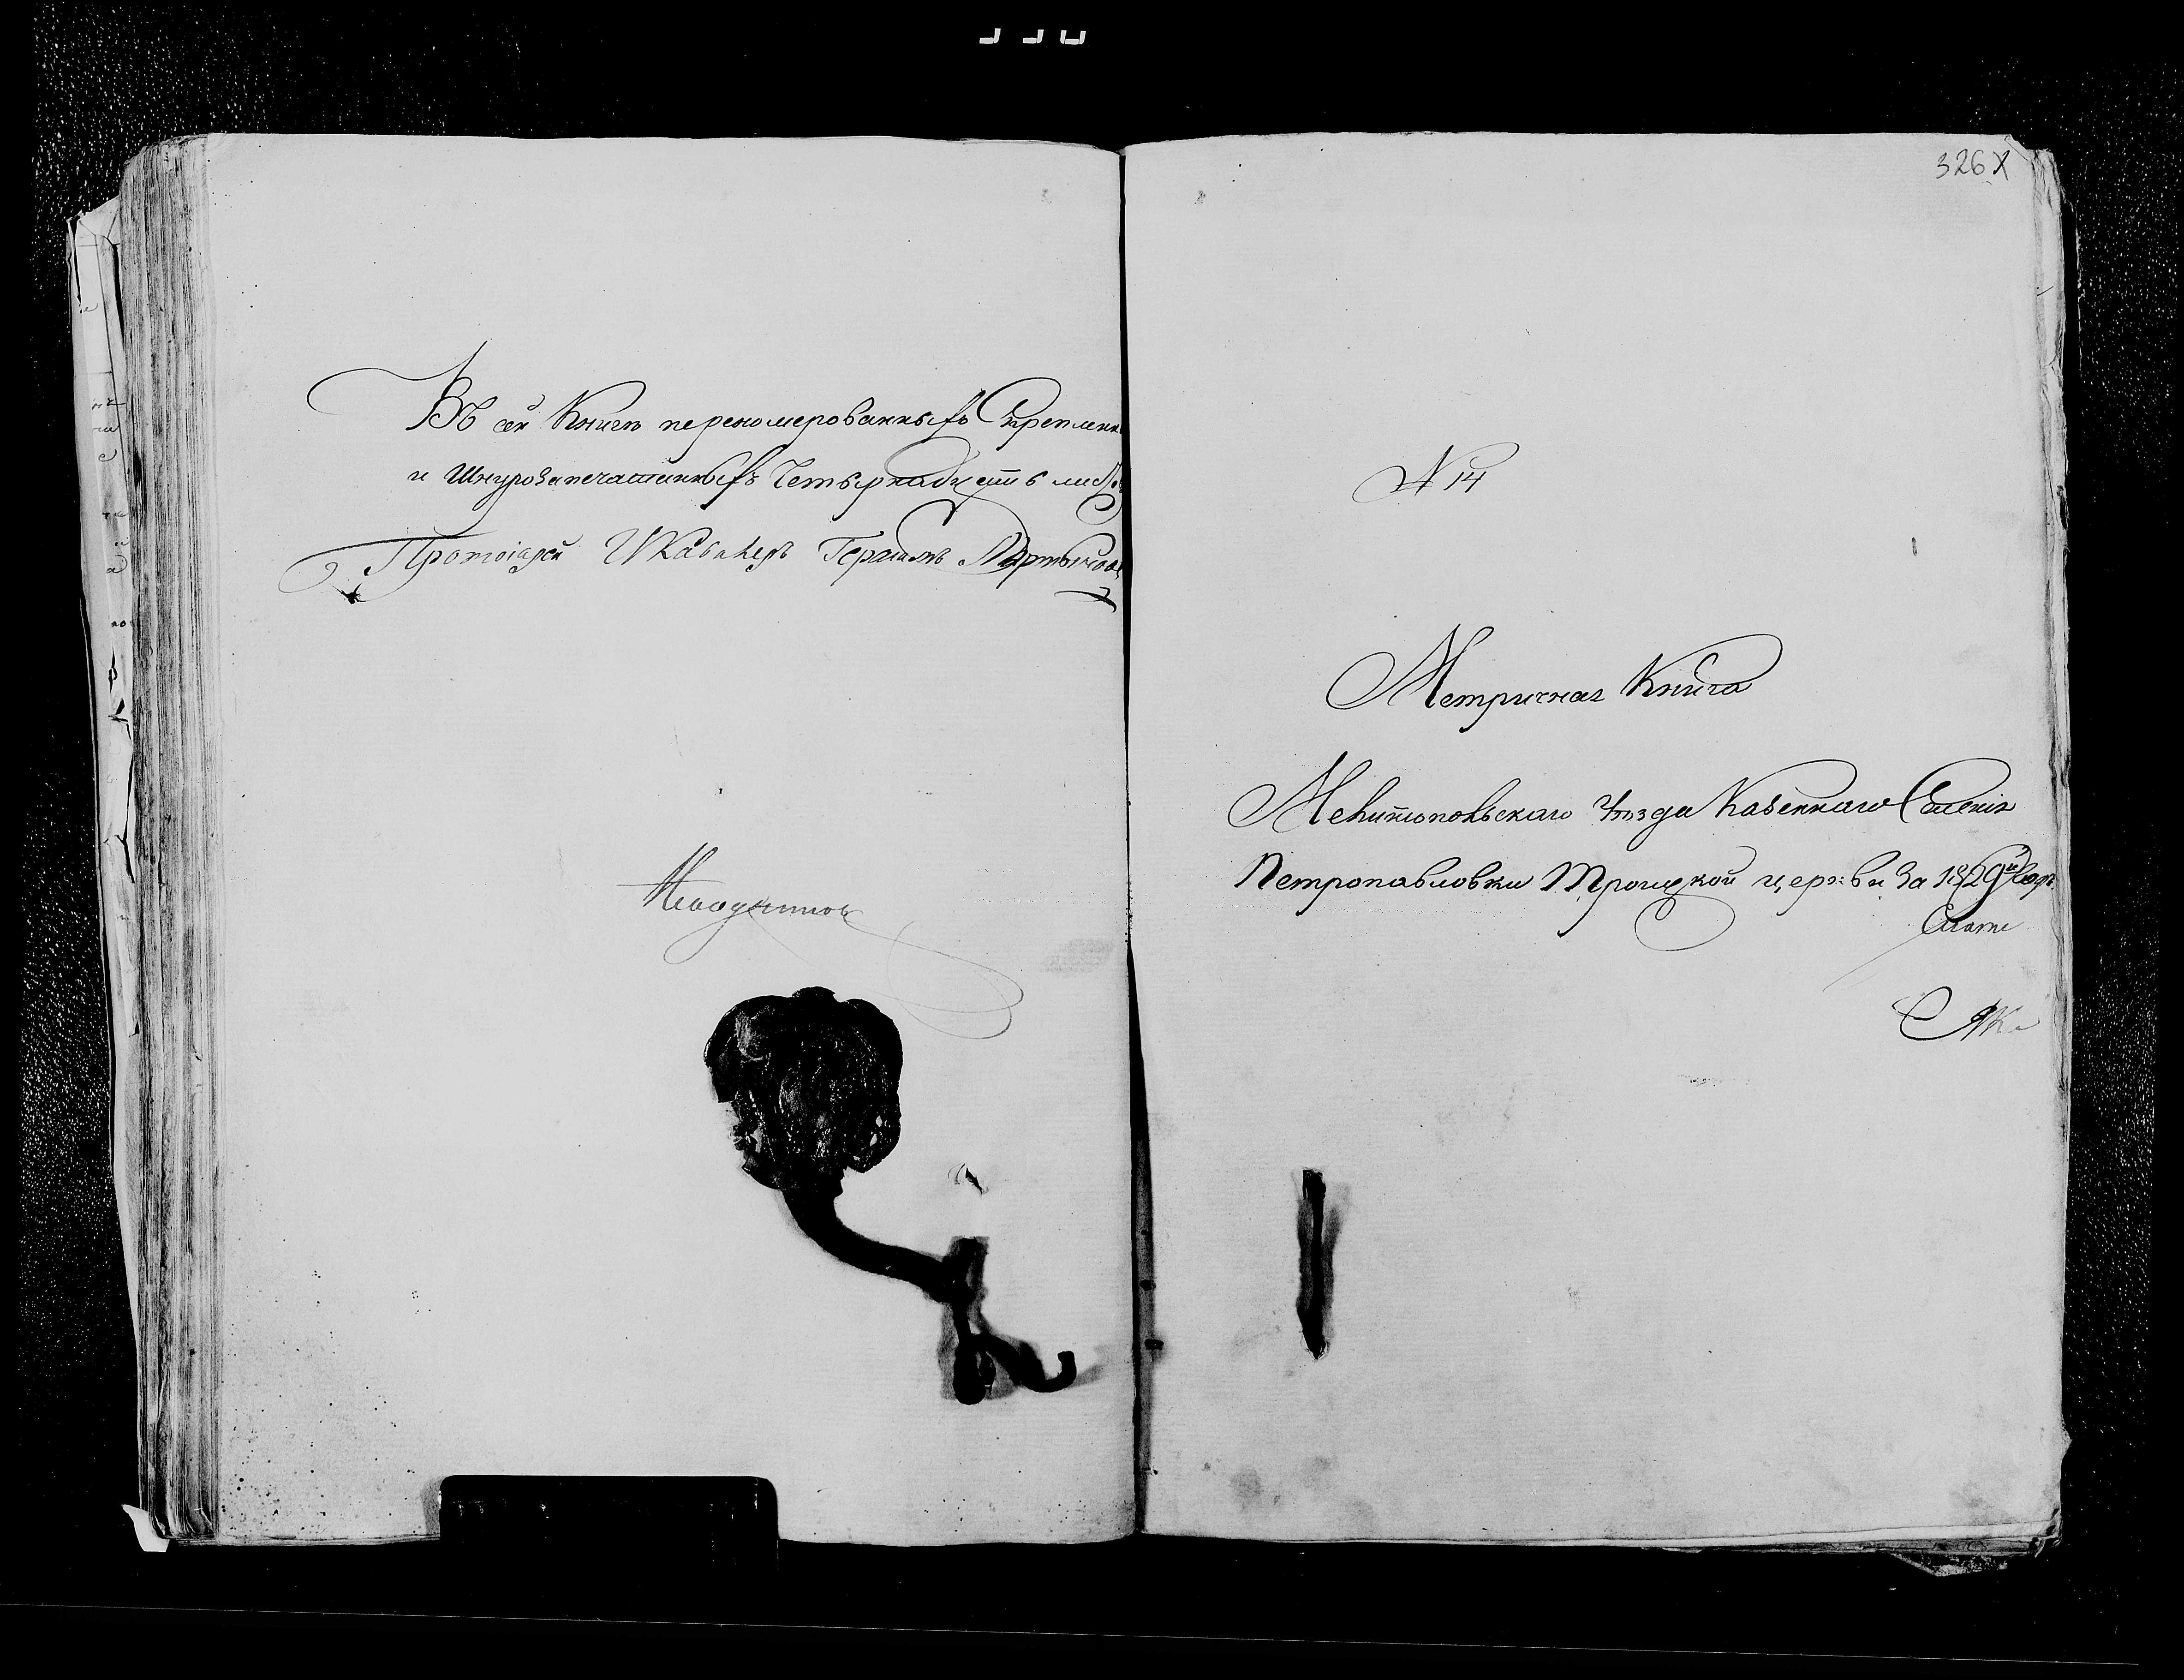 Въ сей Книгѣ переномерованныхъ Скрепленн
и Шнурозапечатанныхъ Четырнадцать лис
Протоіерей И Кавалеръ Герасимъ
326
N 14
Метричная Книга
Мелитопольскаго Уѣзда Казеннаго Селенія
Петропавловки Троицкой церкви За 1829й Годъ